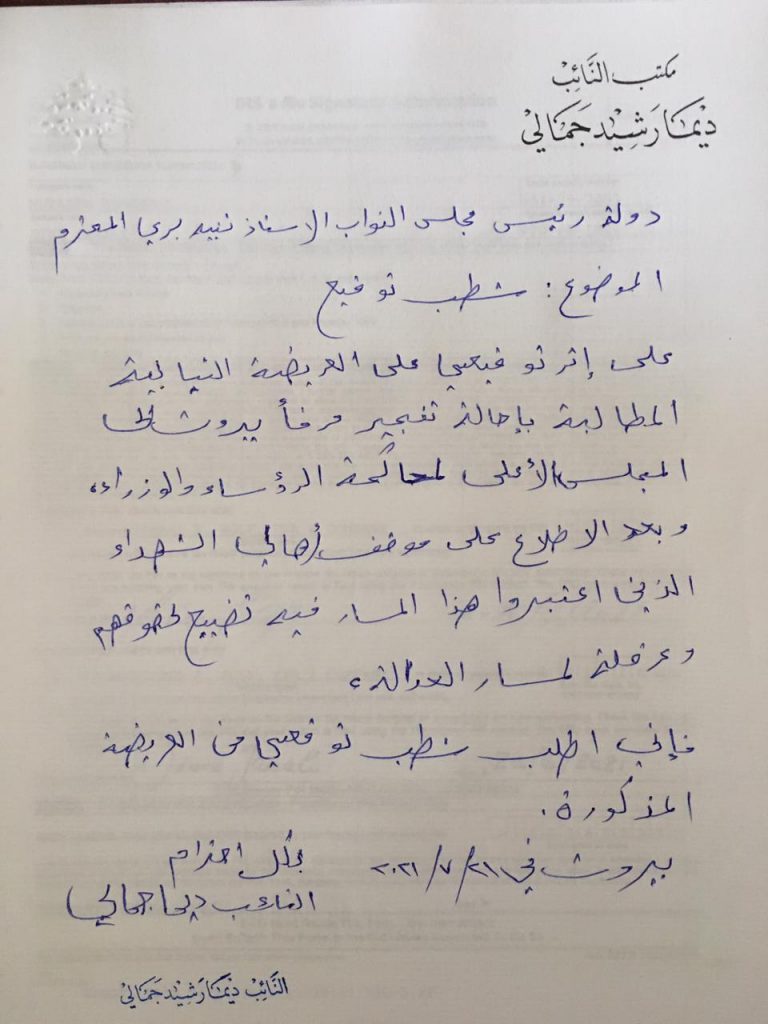 مكتب النَّائِب
ديْمَا رَشِيْد جَمَالِيْ
دولة رئيس مجلس النواب الاستاذ نبيه بري المحترم
الموضوع : شطب توقيع
على إثر توقيعي على العريضة النيابية
المطالبة بإحالة تفجير مرفأ بيروت الى
المجلس الأعلى لمحاكمة الرؤساء والوزراء،
وبعد الاطلاع على موقف أهالي الشهداء
الذين اعتبروا هذا المسار فيه تضييع لحقوقهم
وعرقلة لمسار العدالة،
فإني اطلب شطب توقيعي من العريضة
المذكورة.
بيروت في ٢١/٧/٢٠٢١
بكل احترام
النائب ديما جمالي
النَّائِبْ ديْمَا رَشِيْد جَمَالِيْ